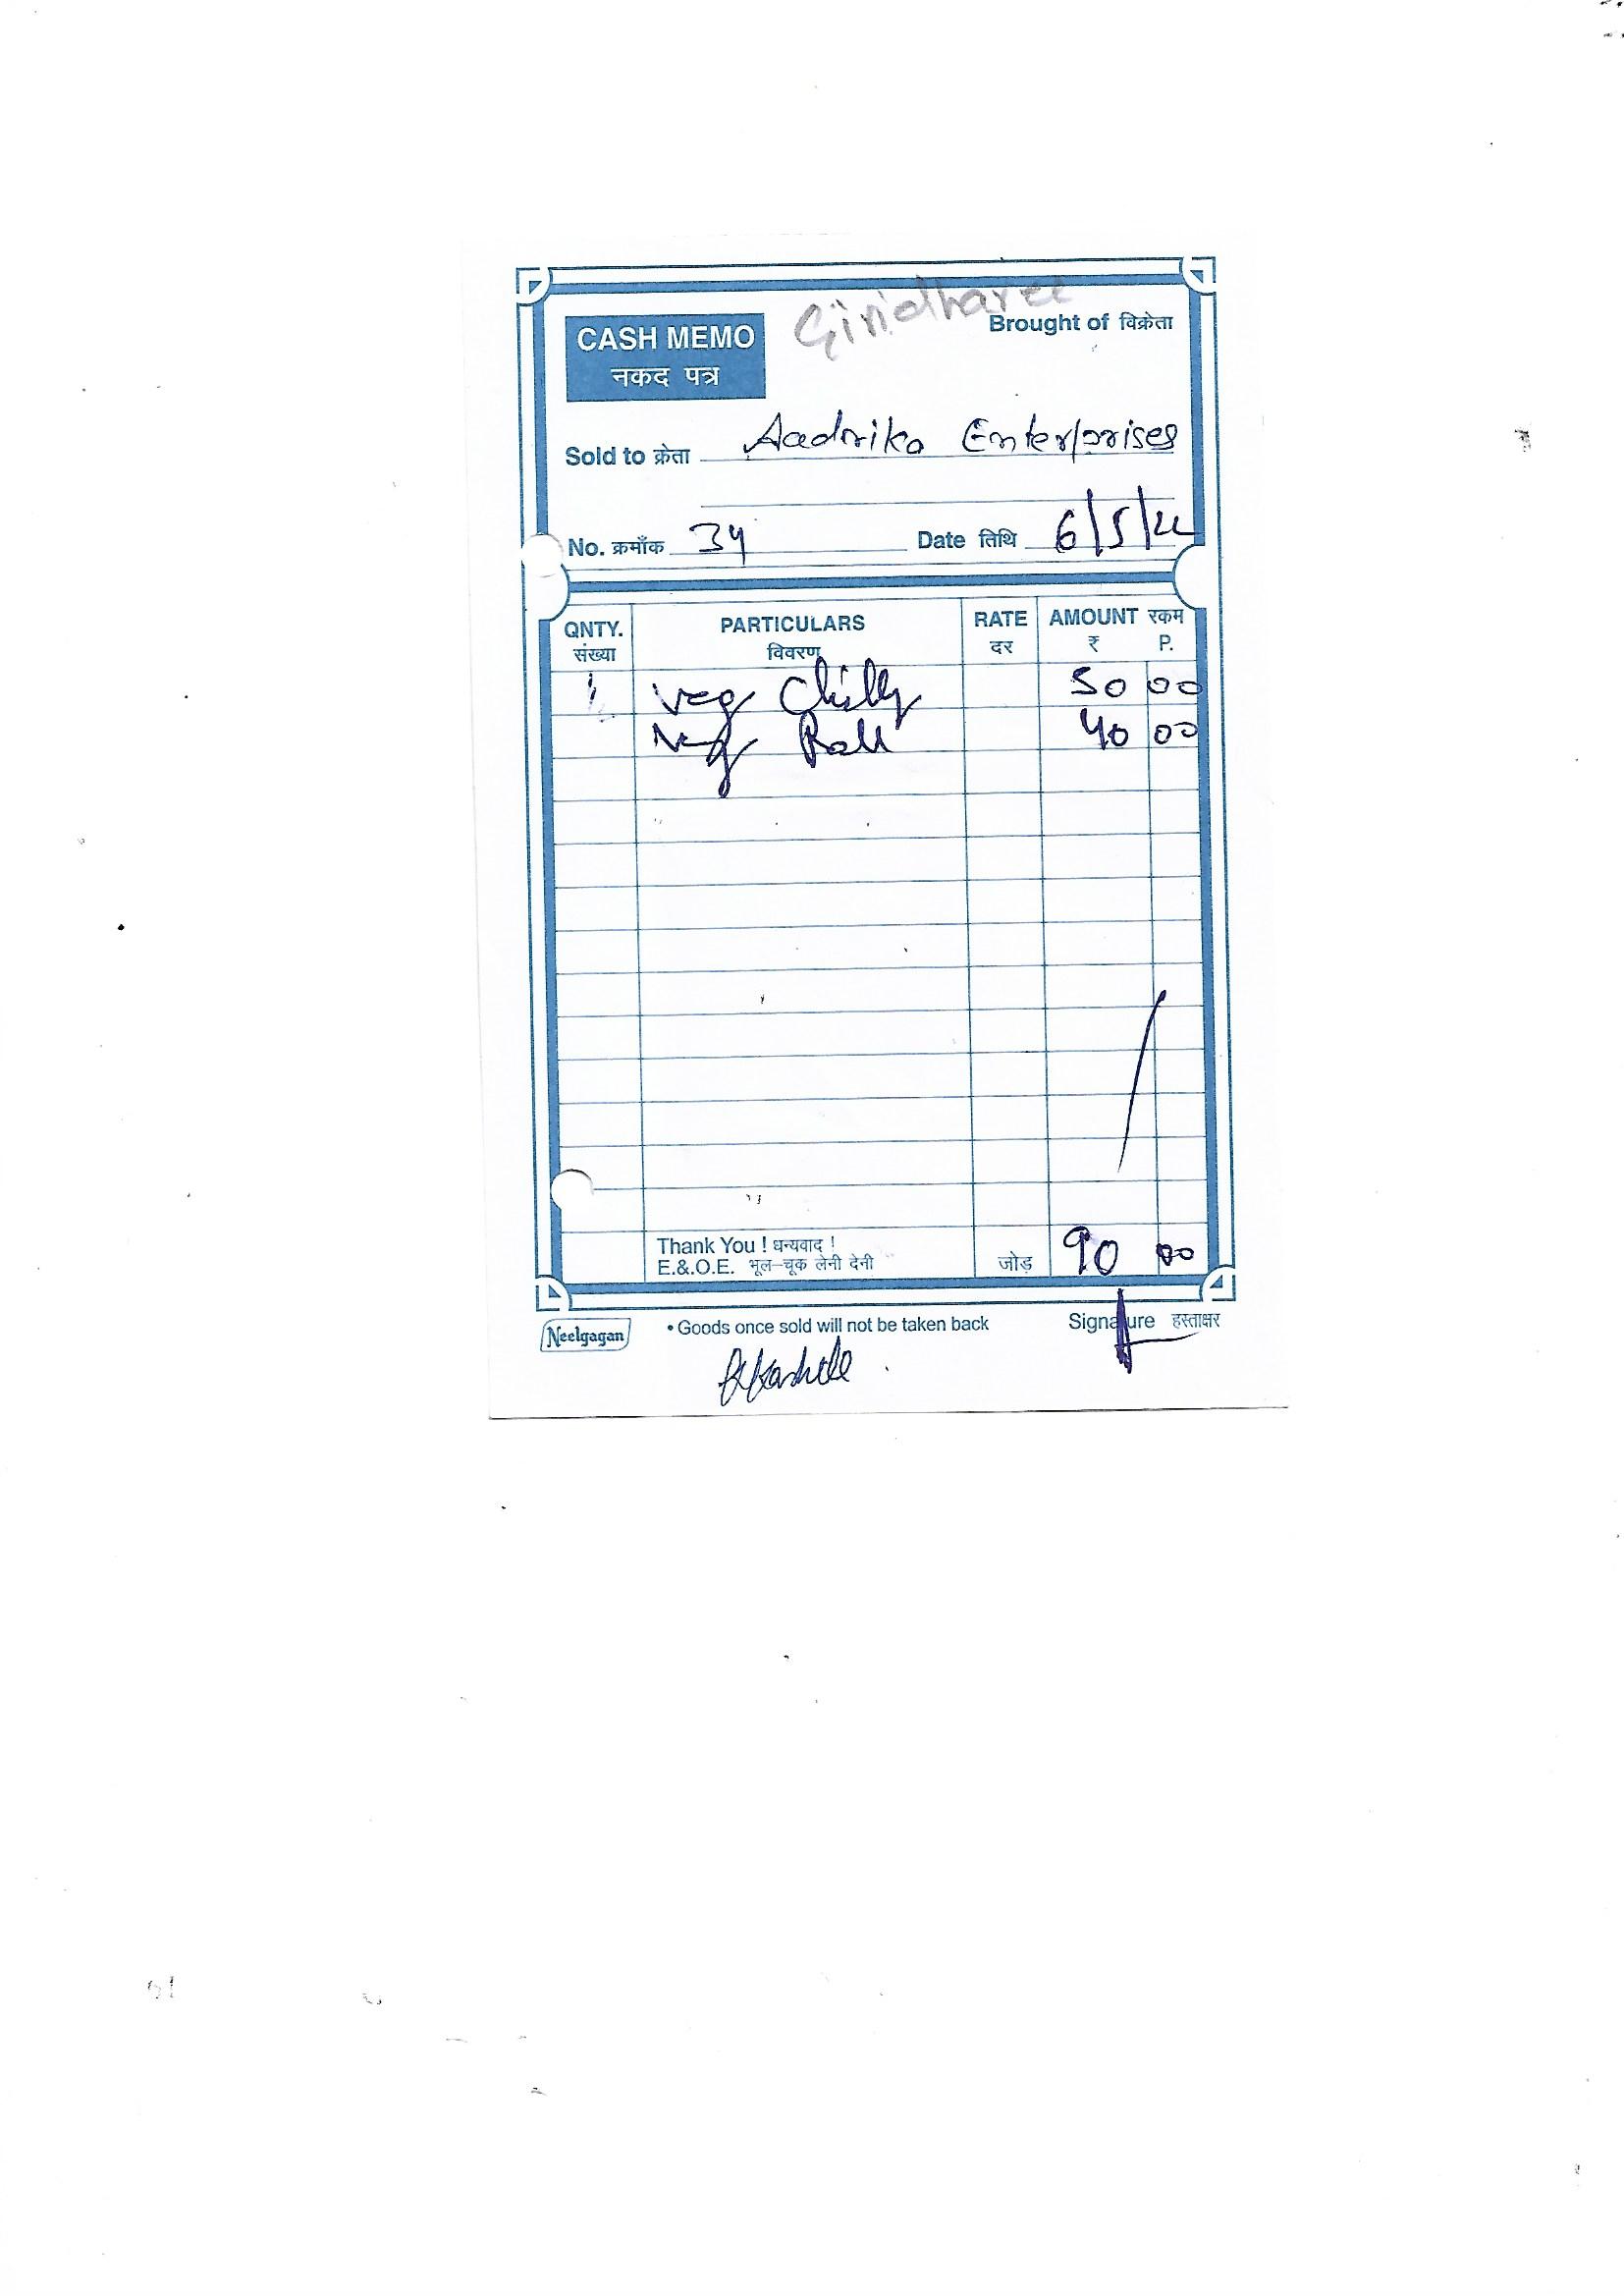 Giridharee
CASH MEMO
नकद पत्र
Brought of विक्रेता
Sold to क्रेता Aadrika Enterprises
No. क्रमाँक 34 Date तिथि 6/5/22
QNTY. PARTICULARS RATE AMOUNT रकम
संख्या विवरण दर ₹ P.
Veg Chilly 50 00
Veg Roll 40 00
Thank You ! धन्यवाद !
E.&.O.E. भूल-चूक लेनी देनी जोड़ 90 00
Neelgagan • Goods once sold will not be taken back Signature हस्ताक्षर